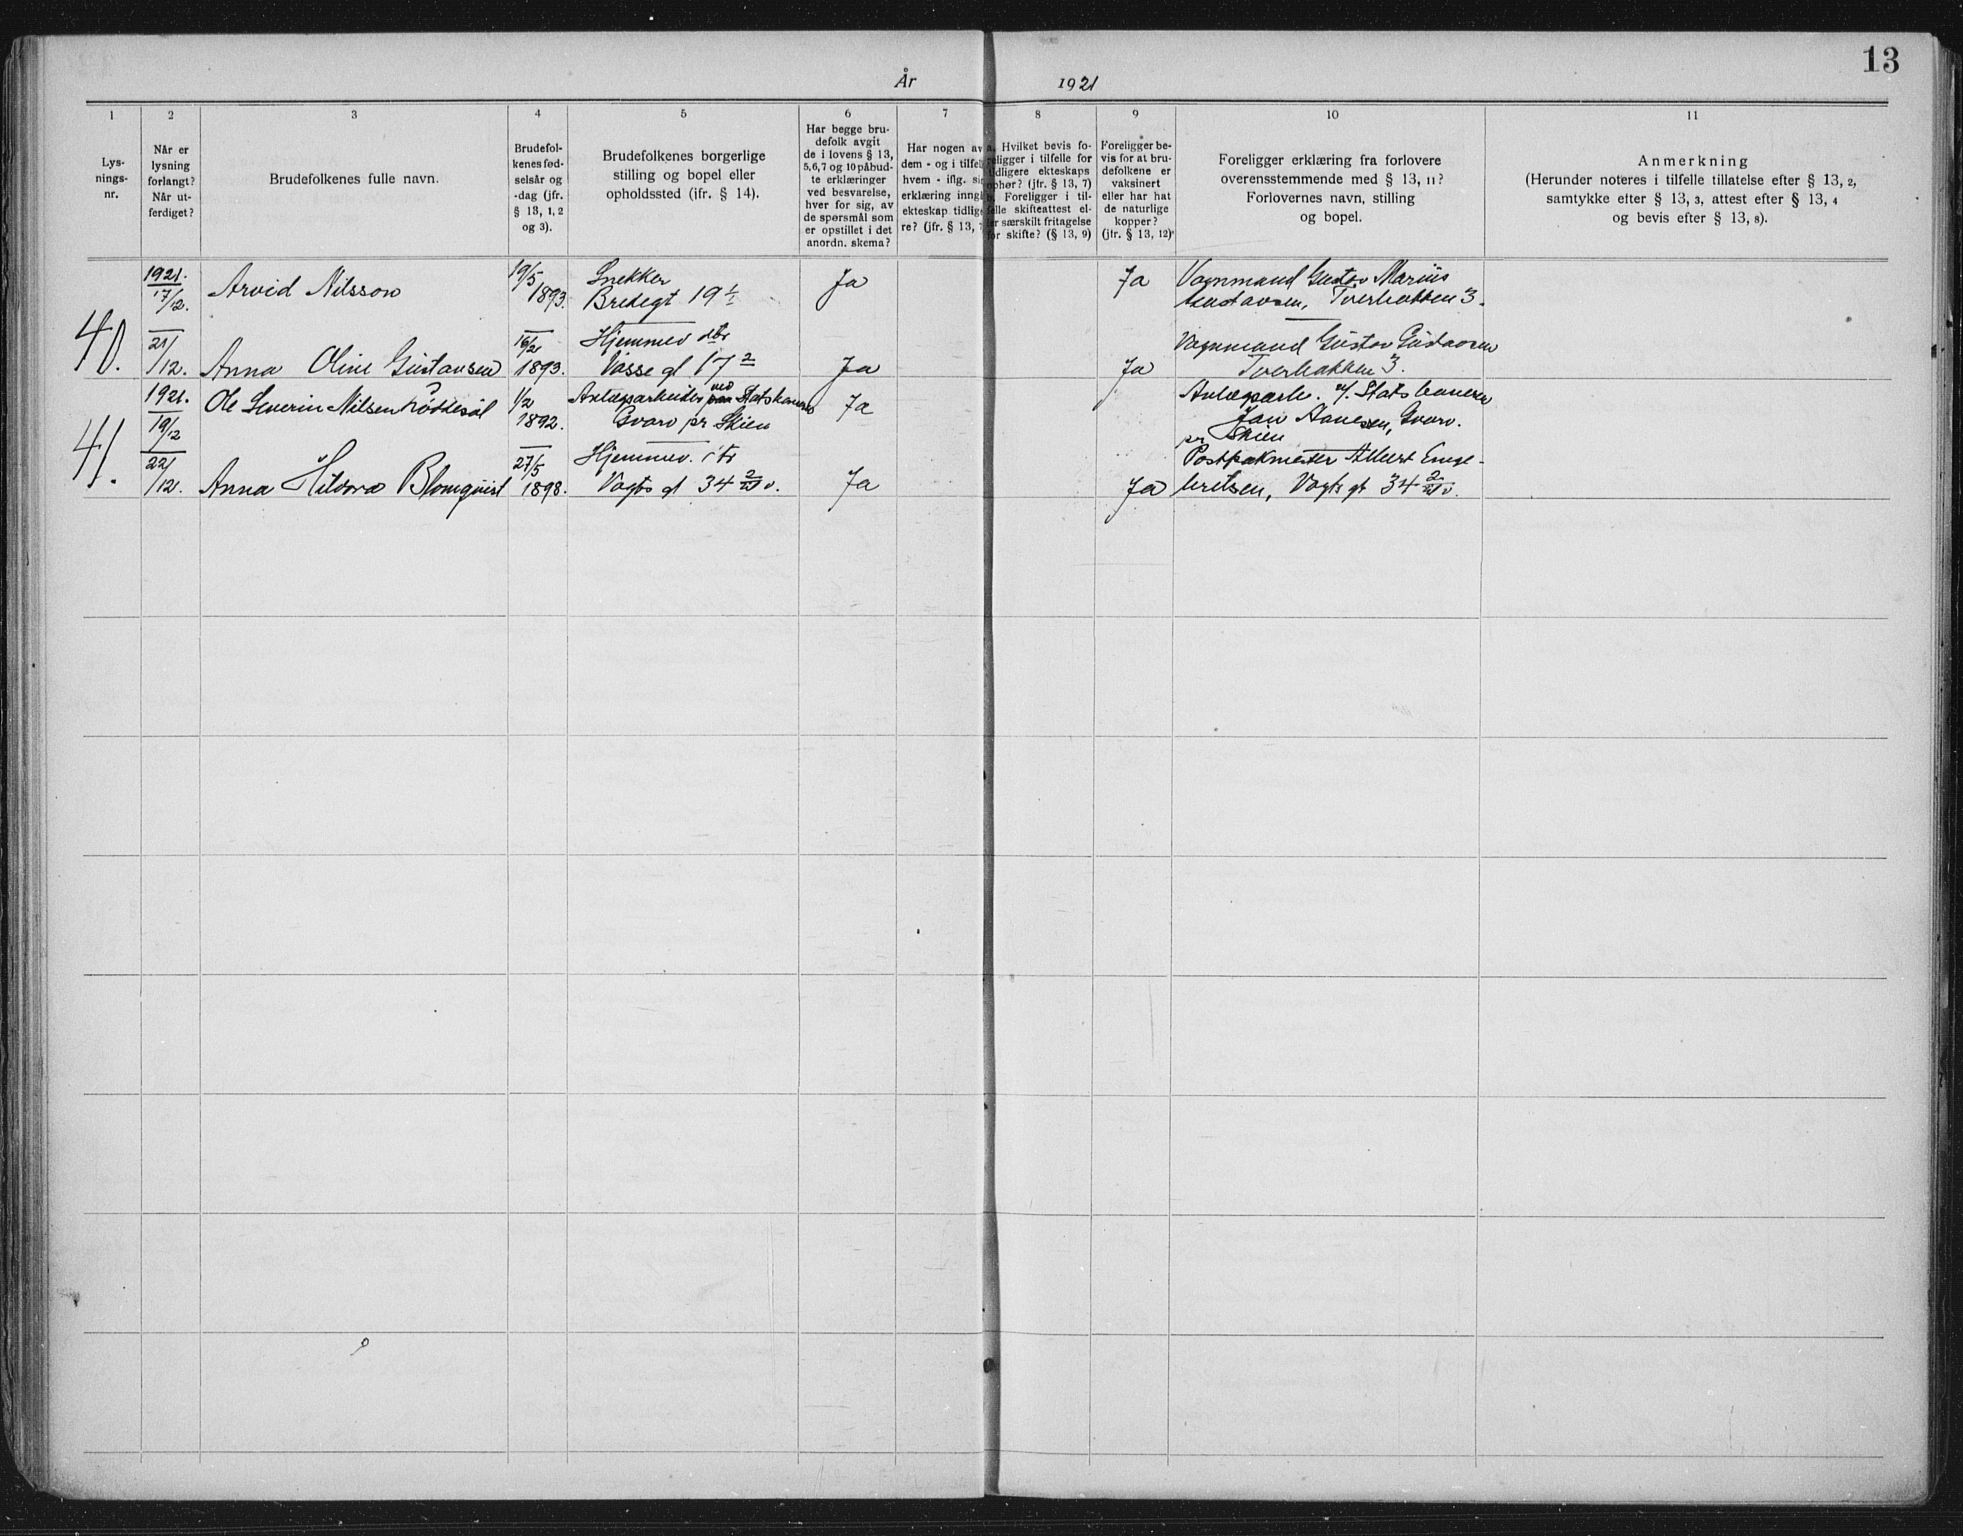 13
År 1921
1 2 3 4 5 6 7 8 9 10 11
Lys-
nings-
nr.
Når er
lysning
forlangt?
Når ut-
ferdiget?
Brudefolkenes fulle navn.
Brudefol-
kenes fød-
selsår og
-dag (jfr.
§ 13, 1, 2
og 3).
Brudefolkenes borgerlige
stilling og bopel eller
opholdssted (ifr. § 14).
Har begge bru-
defolk avgit
de i lovens § 13,
5,6,7 og 10 påbud-
te erklæringer
ved besvarelse,
hver for sig, av
de spørsmål som
er opstillet i det
anordn. skema?
Har nogen av
dem - og i tilfel
hvem - iflg. si
erklæring inng
ekteskap tidlig
re? (jfr. § 13,
a. Hvilket bevis fo-
religger i tilfelle for
tidligere ekteskaps
ophør? (jfr. § 13, 7)
b. Foreligger i til-
felle skifteattest el-
ler særskilt fritagelse
for skifte? (§ 13, 9)
Foreligger be-
vis for at bru-
defolkene er
vaksinert
eller har hat
de naturlige
kopper?
(jfr. § 13, 12)
Foreligger erklæring fra forlovere
overensstemmende med § 13, 11?
Forlovernes navn, stilling
og bopel.
Anmerkning
(Herunder noteres i tilfelle tillatelse efter § 13, 2,
samtykke efter § 13, 3, attest efter § 13, 4
og bevis efter § 13, 8).
40.
1921.
17/12.
Arvid Nilsson
19/5
1893.
Snekker
Bredegt 19 1
Ja
Ja
Vognmand Gustav Marius
Gustavsen, Tverbakken 3.
21/12.
Anna Oline Gustavsen
16/2
1893.
Hjemmev dtr
Vasse gt 17 2
Ja
Ja
Vognmand Gustav Gustavsen
Tverbakken 3.
41.
1921.
19/12
Ole Severin Nilsen
1/2
1892.
Anlægsarbeider ved Statsbanerne
Gvarv pr Skien
Ja
Anlægsarb. v/. Statsbanerne
Jan Aanesen, Gvarv.
pr Skien
22/12.
Anna Hildora Blomqvist
27/5
1898.
Hjemmev.
Vogts gt 34 2
Ja
Ja
Postpakmester Albert Enge-
bretsen, Vogts gt 34 2